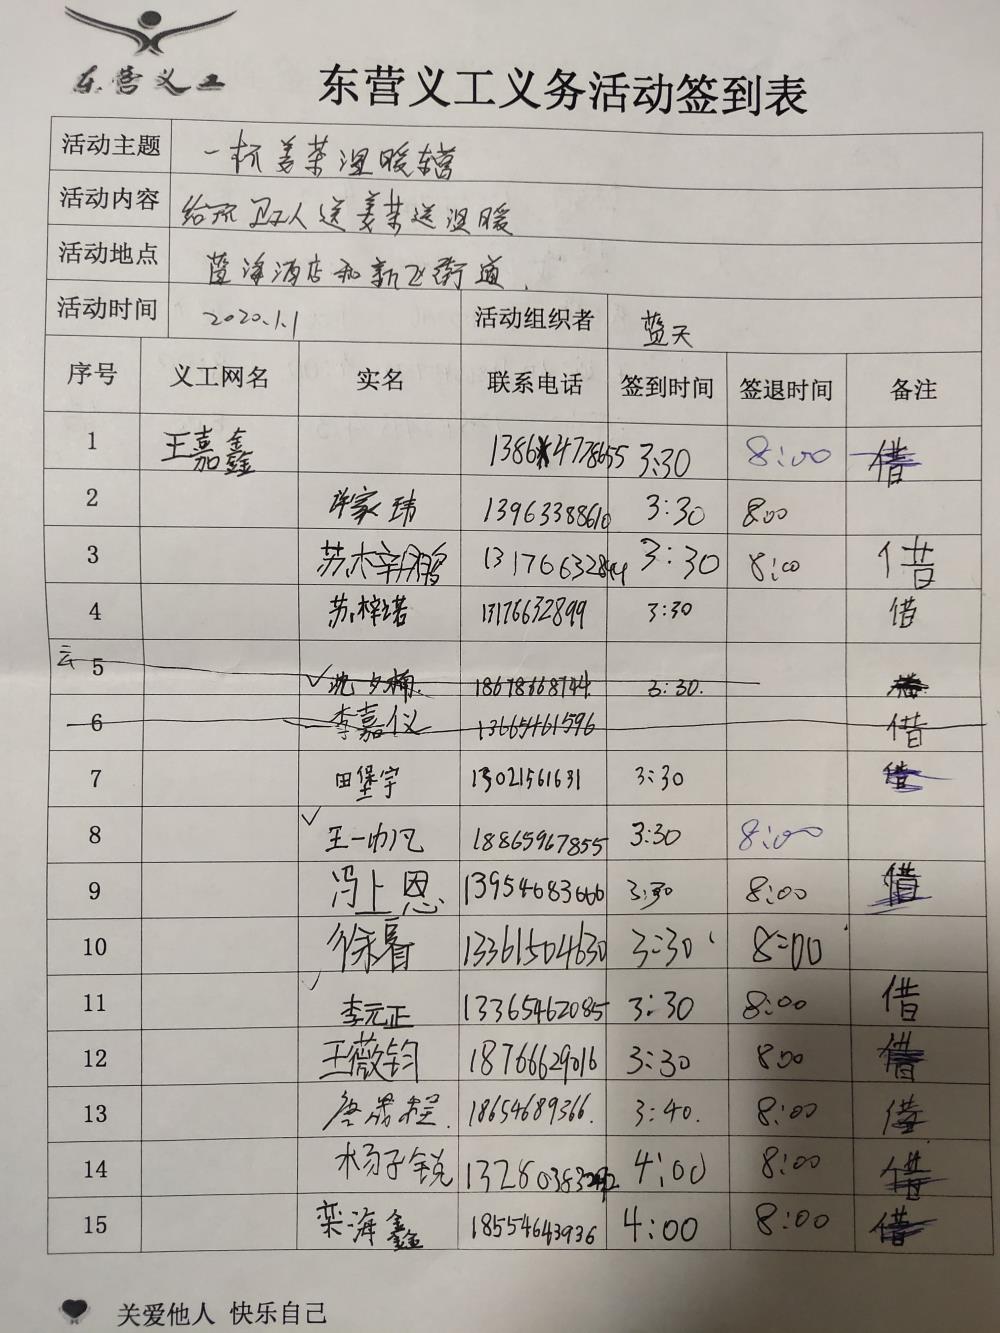 东营义工
东营义工义务活动签到表
活动主题 一杯姜茶温暖东营
活动内容 给环卫工人送姜茶送温暖
活动地点 蓝海酒店和新飞街道.
活动时间 2020.1.1 活动组织者 蓝天
序号 义工网名 实名 联系电话 签到时间 签退时间 备注
1 王嘉鑫 3:30 8:00 借
2 许家玮 13963388610 3:30 8:00
3 13176632899 3:30 8:00 借
4 苏梓诺 13176632899 3:30 借
云 5 18678668744. 3:30.
6 李嘉仪 13665461596 借
7 田堡宇 13021561631 3:30 借
8 王一帆 18865967855 3:30 8:00
9 冯上恩 13954683666 3:30 8:00 借
10 13361504630 3:30 8:00
11 李元正 13365462085 3:30 8:00 借
12 王薇钧 18766629016 3:30 8:00 借
13 18654689366. 3:40. 8:00 借
14 杨子锐 4:00 8:00 借
15 栾海鑫 18554643936 4:00 8:00 借
关爱他人 快乐自己